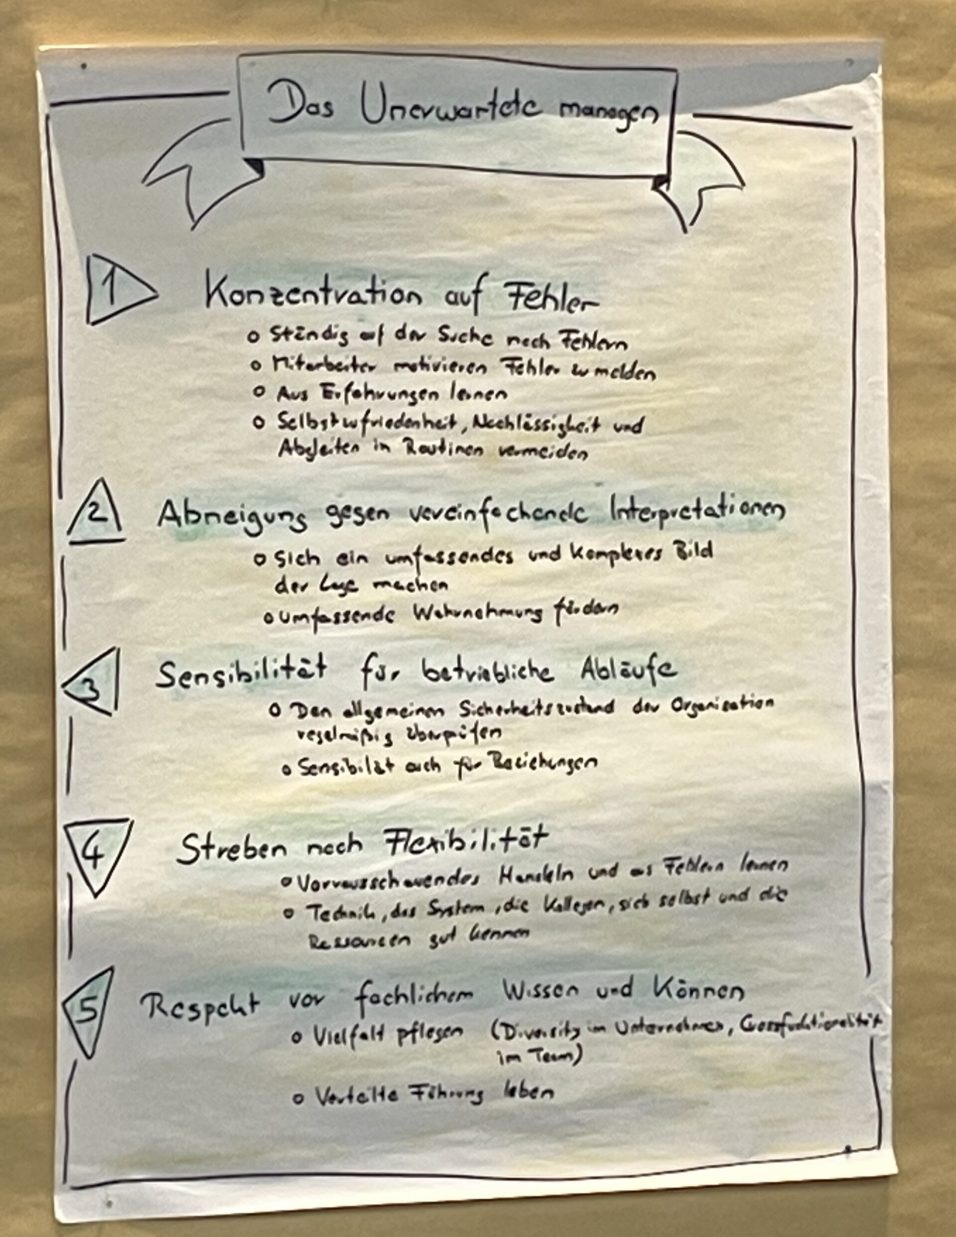 Das Unerwartete managen
1 Konzentration auf Fehler
o Ständig auf der Suche nach Fehlern
o Mitarbeiter motivieren Fehler zu melden
o Aus Erfahrungen lernen
o Selbstzufriedenheit, Nachlässigkeit und
Abgleiten in Routinen vermeiden
2 Abneigung gegen vereinfachende Interpretationen
o Sich ein umfassendes und komplexes Bild
der Lage machen
o umfassende Wahrnehmung fördern
3 Sensibilität für betriebliche Abläufe
o Den allgemeinen Sicherheitszustand der Organisation
regelmäßig überprüfen
o Sensibilät auch für Beziehungen
4 Streben nach Flexibilität
o Vorrausschauendes Handeln und aus Fehlern lernen
o Technik, das System, die Kollegen, sich selbst und die
Ressourcen gut kennen
5 Respekt vor fachlichem Wissen und Können
o Vielfalt pflegen (Diversity im Unternehmen, Crossfuctionalität
im Team)
o Verteilte Führung leben